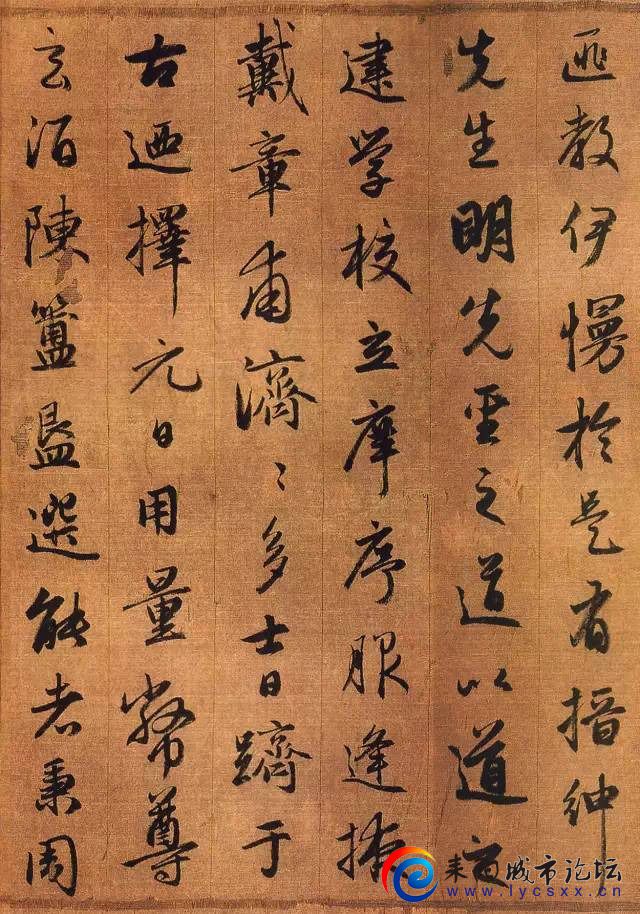 匪教伊慢於是有搢紳
先生明先聖之道以道
建学校立庠序服逢掖
戴章甫濟〻多士日躋于
古迺擇元日用量幣尊
玄酒陳簠簋選能者秉周
耒阳城市论坛
www.lycsxx.cn